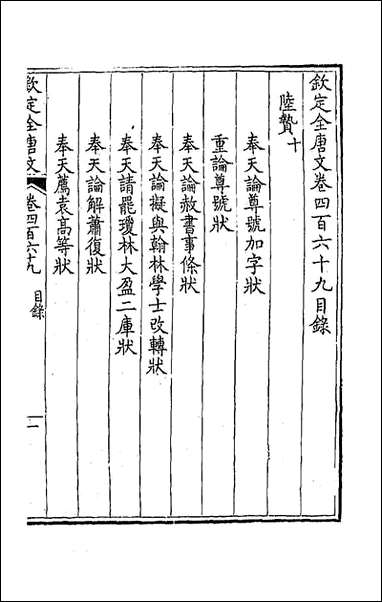 欽定全唐文卷四百六十九目錄
陸贄十
奉天論尊號加字狀
重論尊號狀
奉天論赦書事條狀
奉天論擬與翰林學士改轉狀
奉天請罷瓊林大盈二庫狀
奉天論解蕭復狀
奉天薦袁高等狀
欽定全唐文 卷四百六十九 目錄 一